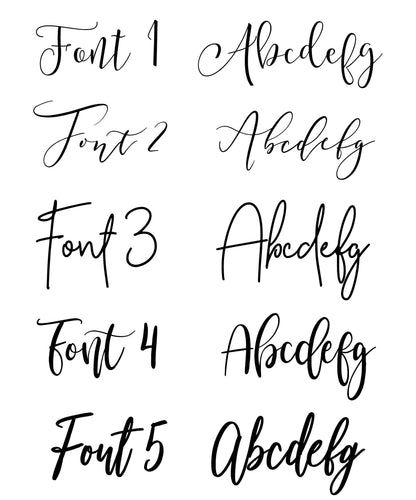 Font 1 Abcdefg
Font 2 Abcdefg
Font 3 Abcdefg
Font 4 Abcdefg
Font 5 Abcdefg